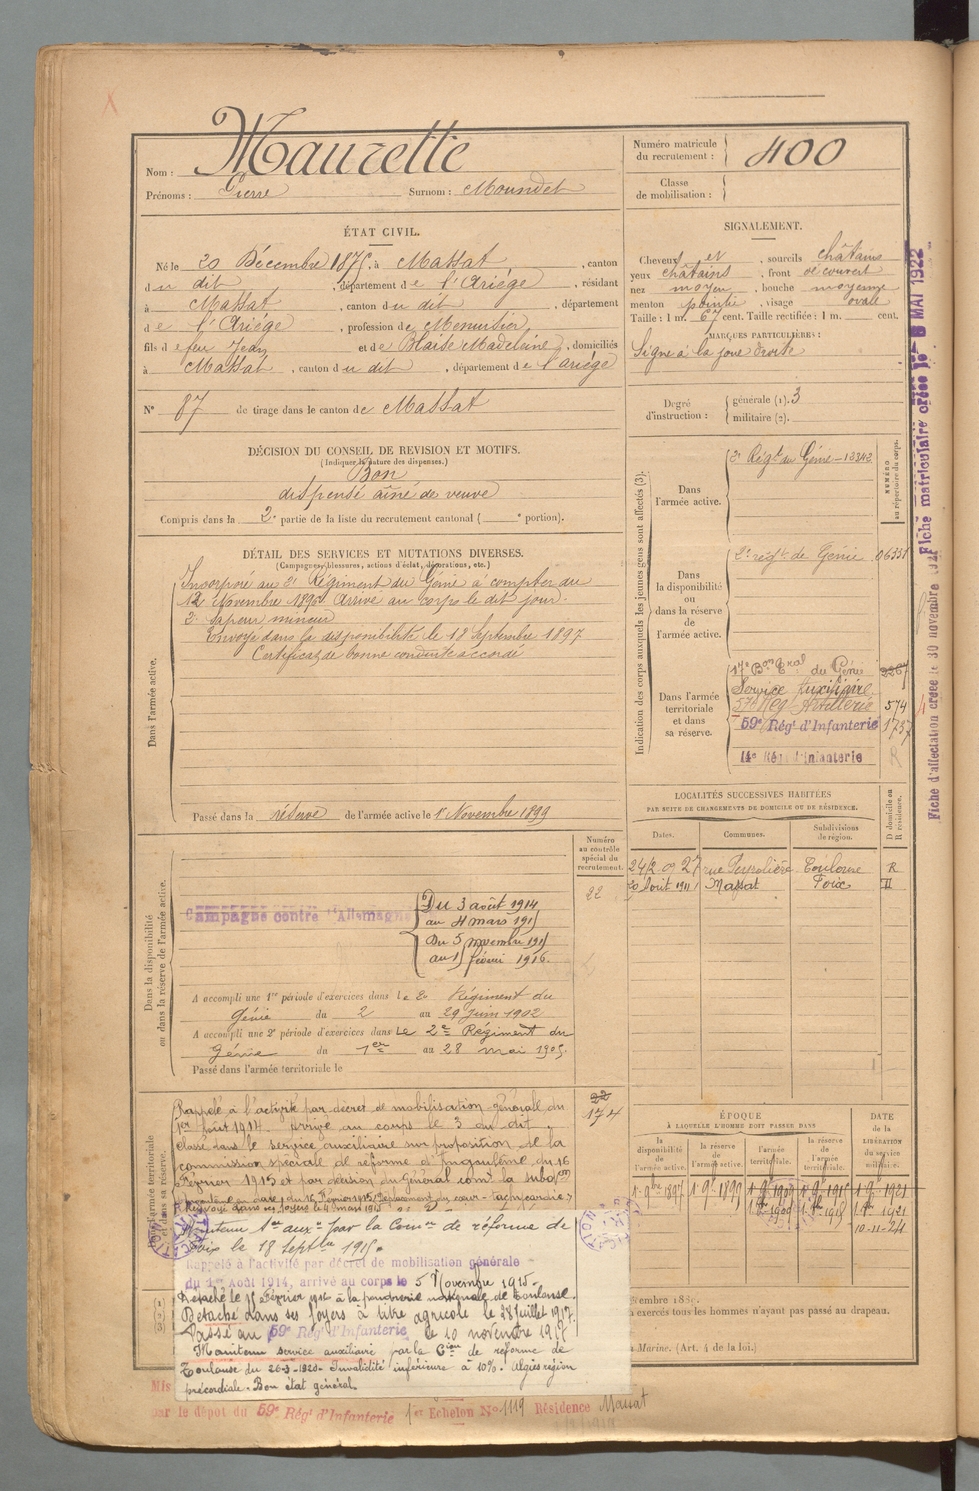 Nom : Maurette
Prénoms : Pierre Surnom : Moundet
Numéro matricule du recrutement : 400
Classe de mobilisation :
ÉTAT CIVIL.
Né le 20 Décembre 1875, à Massat, canton
du dit, département de l'Ariège, résidant
à Massat, canton du dit, département
de l'Ariège, profession de Menuisier,
fils de feu Jean et de Blaise Madeleine, domiciliés
à Massat, canton du dit, département de l'ariège
N° 87 de tirage dans le canton de Massat
SIGNALEMENT.
Cheveux et, sourcils châtains
yeux châtains, front découvert
nez moyen, bouche moyenne
menton pointu, visage ovale
Taille : 1 m. 67 cent. Taille rectifiée : 1 m. cent.
MARQUES PARTICULIÈRES :
Signe à la joue droite
Degré d'instruction : générale (1). 3
militaire (2).
DÉCISION DU CONSEIL DE REVISION ET MOTIFS.
(Indiquer la nature des dispenses.)
Bon
dispensé aîné de veuve
Compris dans la 2e partie de la liste du recrutement cantonal ( e portion).
DÉTAIL DES SERVICES ET MUTATIONS DIVERSES.
(Campagnes, blessures, actions d'éclat, décorations, etc.)
Dans l'armée active.
Incorporé au 2e Régiment du Génie à compter du
12 Novembre 1896 Arrivé au corps le dit jour.
2e sapeur mineur
Envoyé dans la disponibilité le 18 Septembre 1897
Certificat de bonne conduite accordé
Passé dans la réserve de l'armée active le 1er Novembre 1899
Indication des corps auxquels les jeunes gens sont affectés (3).
NUMÉRO au répertoire du corps.
Dans l'armée active.
2e Régt du Génie - 13342
Dans la disponibilité ou dans la réserve de l'armée active.
2e régt de Génie 06331
Dans l'armée territoriale et dans sa réserve.
17e Bon Tral du Génie 2267
Service Auxiliaire
57e Reg Artillerie 574
59e Régt d'Infanterie 1737
14e Régt d'Infanterie R
LOCALITÉS SUCCESSIVES HABITÉES
PAR SUITE DE CHANGEMENTS DE DOMICILE OU DE RÉSIDENCE.
Dates. Communes. Subdivisions de région. D domicile ou R résidence.
rue Peyrolière Toulouse R
20 Avril 1911 Massat Foix
Dans la disponibilité ou dans la réserve de l'armée active.
Numéro au contrôle spécial du recrutement.
22
Campagne contre l'Allemagne
Du 3 août 1914
au 4 mars 1915
Du 5 novembre 1915
au 15 février 1916.
A accompli une 1re période d'exercices dans le 2e Régiment du
Génie du 2 au 29 juin 1902
A accompli une 2e période d'exercices dans le 2e Régiment du
Génie du 1er au 28 mai 1905.
Passé dans l'armée territoriale le
22
174
Rappelé à l'activité par décret de mobilisation générale du
1er août 1914. Arrivé au corps le 3 au dit
classé dans le service auxiliaire sur proposition de la
commission spéciale de réforme d'Angoulême du 16
Février 1915 et par décision du Général comt la subdon
Renvoyé dans ses foyers le 4 mars 1915
Maintenu Sce auxre par la Comon de réforme de
Foix le 18 Septbre 1915.
Rappelé à l'activité par décret de mobilisation générale
du 1er Août 1914, arrivé au corps le 5 Novembre 1915.
Détaché le 15 Février 1916 à la poudrerie nationale de Toulouse.
Détaché dans ses foyers à titre agricole le 28 Juillet 1917.
Passé au 59e Régt d'Infanterie le 10 novembre 1917
Maintenu service auxiliaire par la Cion de réforme de
Toulouse du 26-3-1920- Invalidité inférieure à 10%. Algies région
précordiale. Bon état général.
par le dépôt du 59e Régt d'Infanterie 1er Echelon N° 1119 Résidence Massat
ÉPOQUE
À LAQUELLE L'HOMME DOIT PASSER DANS
DATE de la LIBÉRATION du service militaire.
la disponibilité de l'armée active. la réserve de l'armée active. l'armée territoriale. la réserve de l'armée territoriale.
1 9bre 1897 1 9bre 1899 1 9bre 1909 1 9bre 1915 1 9bre 1921
10-11-21
exercés tous les hommes n'ayant pas passé au drapeau.
Marine. (Art. 4 de la loi.)
Fiche matriculaire créée le 8 MAI 1922
Fiche d'affectation créée le 30 novembre